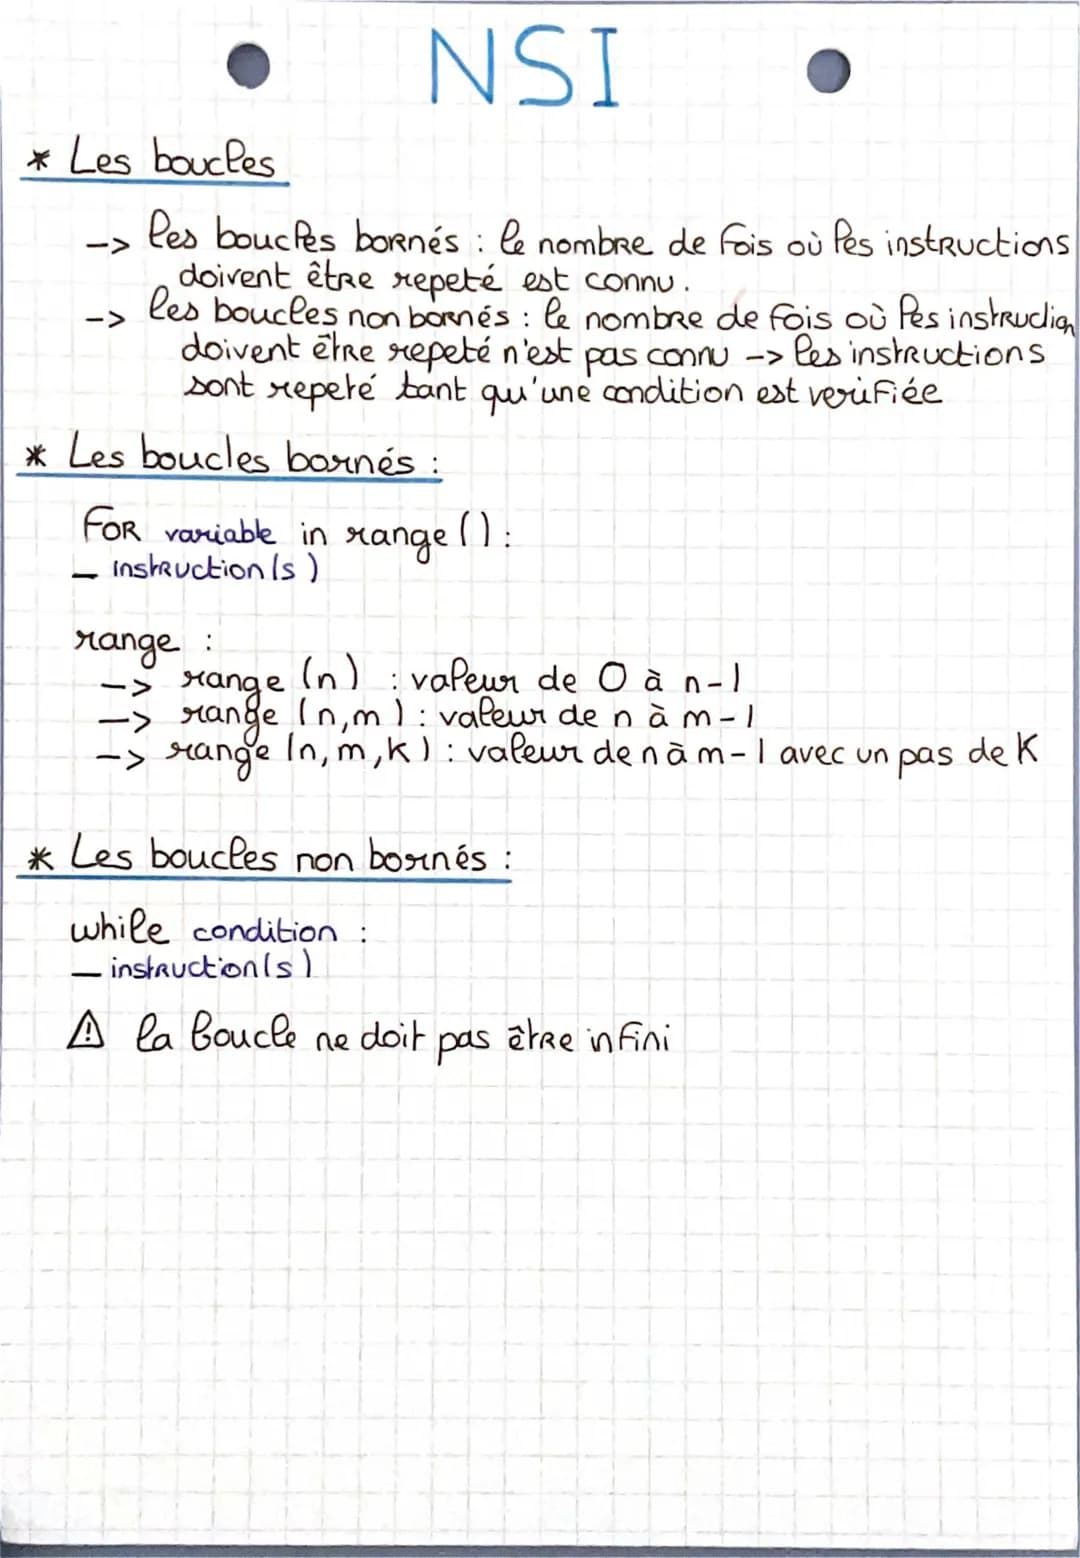 NSI
* Les boucles
-> les boucles bornés : le nombre de fois où les instructions
doivent être repeté est connu.
-> les boucles non bornés : le nombre de fois où les instruction
doivent être repeté n'est pas connu -> les instructions
sont repeté tant qu'une condition est verifiée
* Les boucles bornés :
For variable in range () :
— instruction(s)
range :
-> range (n) : valeur de 0 à n-1
-> range (n,m) : valeur de n à m-1
-> range (n,m,k) : valeur de n à m-1 avec un pas de K
* Les boucles non bornés :
while condition :
— instruction(s)
⚠ la boucle ne doit pas être infini